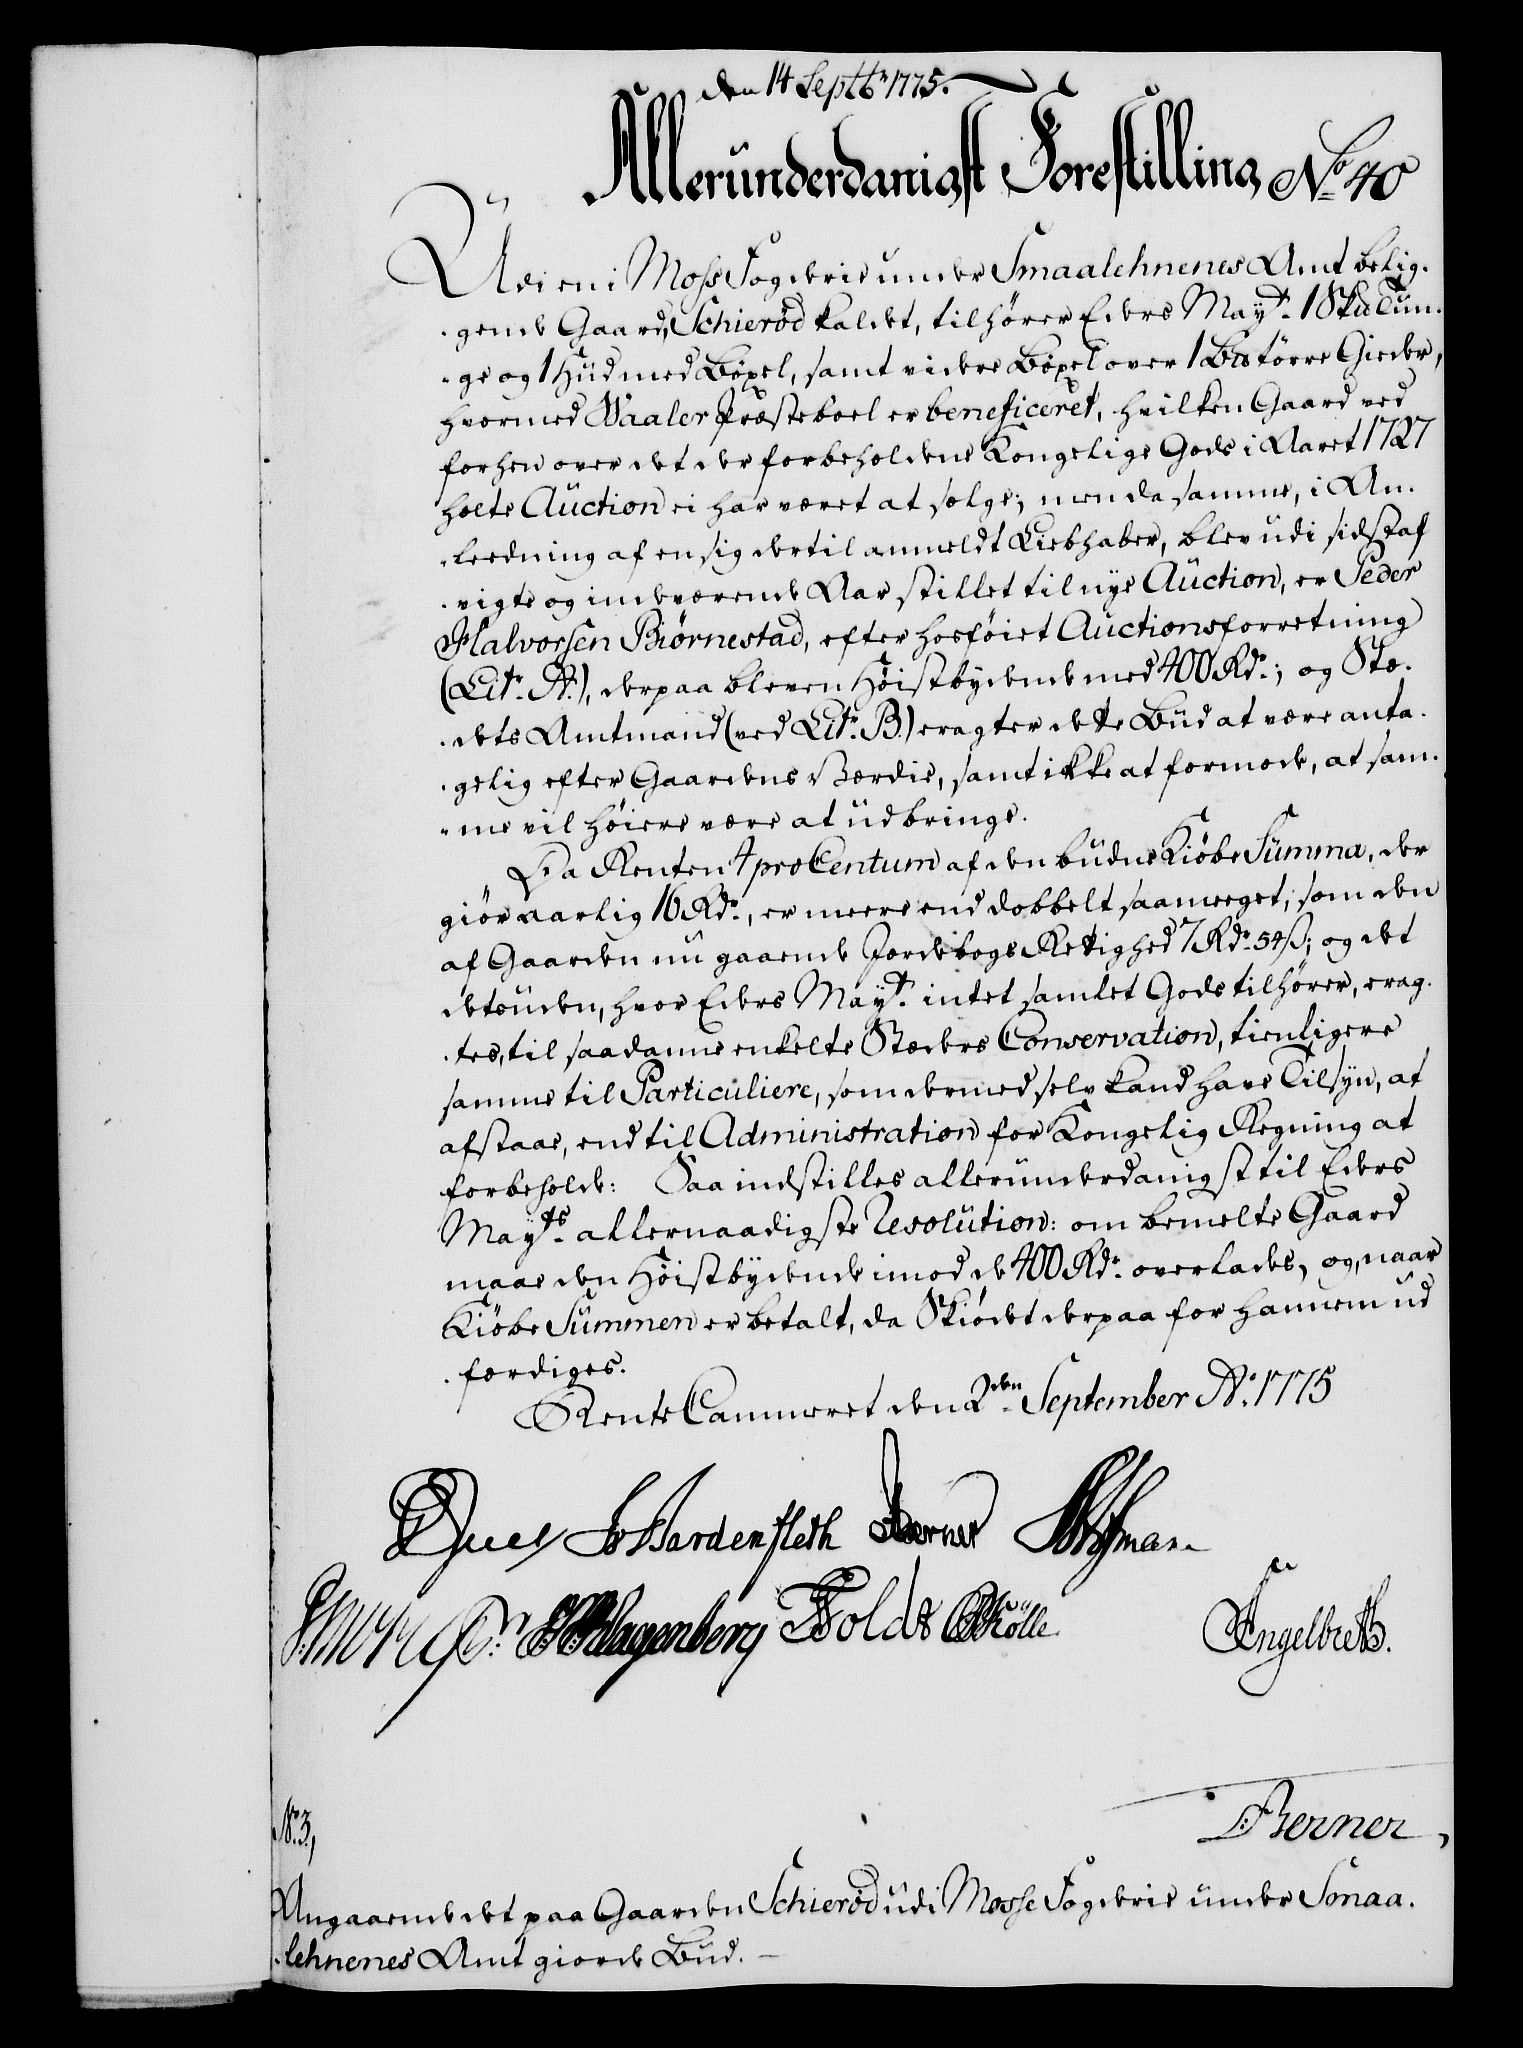 den 14 Septbr 1775.
Allerunderdanigst Forestilling No 40
Udi en i Moss Fogderie under Smaalehnenes Amt belig-
-gende Gaard, Schierød kaldet, tilhører Eders Mayt. 1 Skd Tun-
-ge og 1 Hud med Böxel, samt videre Böxel over 1 Bs törre Gieder,
hvormed Waaler Præsteboel er beneficeret, hvilken Gaard ved
forhen over det der forbeholdene Kongelige Gods i Aaret 1727
holte Auction ei har været at sælge; men da samme, i An-
-leedning af en sig dertil anmeldt Liebhaber, blev udi sidst af
-vigte og indeværende Aar stillet til nye Auction, er Peder
Halvorsen Biørnestad, efter hosföiet Auctionsforretning
(Litr. A.), derpaa bleven Höistbydende med 400 Rdr.; og Stæ-
-dets Amtmand (ved Litr. B.) eragter dette Bud at være anta-
-gelig efter Gaardens Værdie, samt ikke at formode, at sam-
-me vil höiere være at udbringe.
Da Renten 4 pro Centum af den budne Kiöbe Summa, der
giör aarlig 16 Rdr., er meere end dobbelt saameget, som den
af Gaarden nu gaaende Jordebogs Rettighed 7 Rdr. 54 ß; og det
desuden, hvor Eders Mayt. intet samlet Gods tilhører, erag-
-tes, til saadanne enkelte Stæders Conservation, tienligere
samme til Particuliere, som dermed selv kand have Tilsyn, at
afstaae, end til Administration for Kongelig Regning at
forbeholde: Saa indstilles allerunderdanigst til Eders
Mayts. allernaadigste Resolution: om bemelte Gaard
maae den Höistbydende imod de 400 Rdr. overlades, og, naar
Kiöbe Summen er betalt, da Skiödet derpaa for hannem ud
-færdiges.
Rente Cammeret den 2den September Ao. 1775
Juel J. Hardenfleth Berner
Klagenberg Holdt Kölle Engelbreth.
Berner,
No. 3,
Angaaende det paa Gaarden Schierød udi Mosse Fogderie under Smaa-
-lehnenes Amt giorde Bud. –